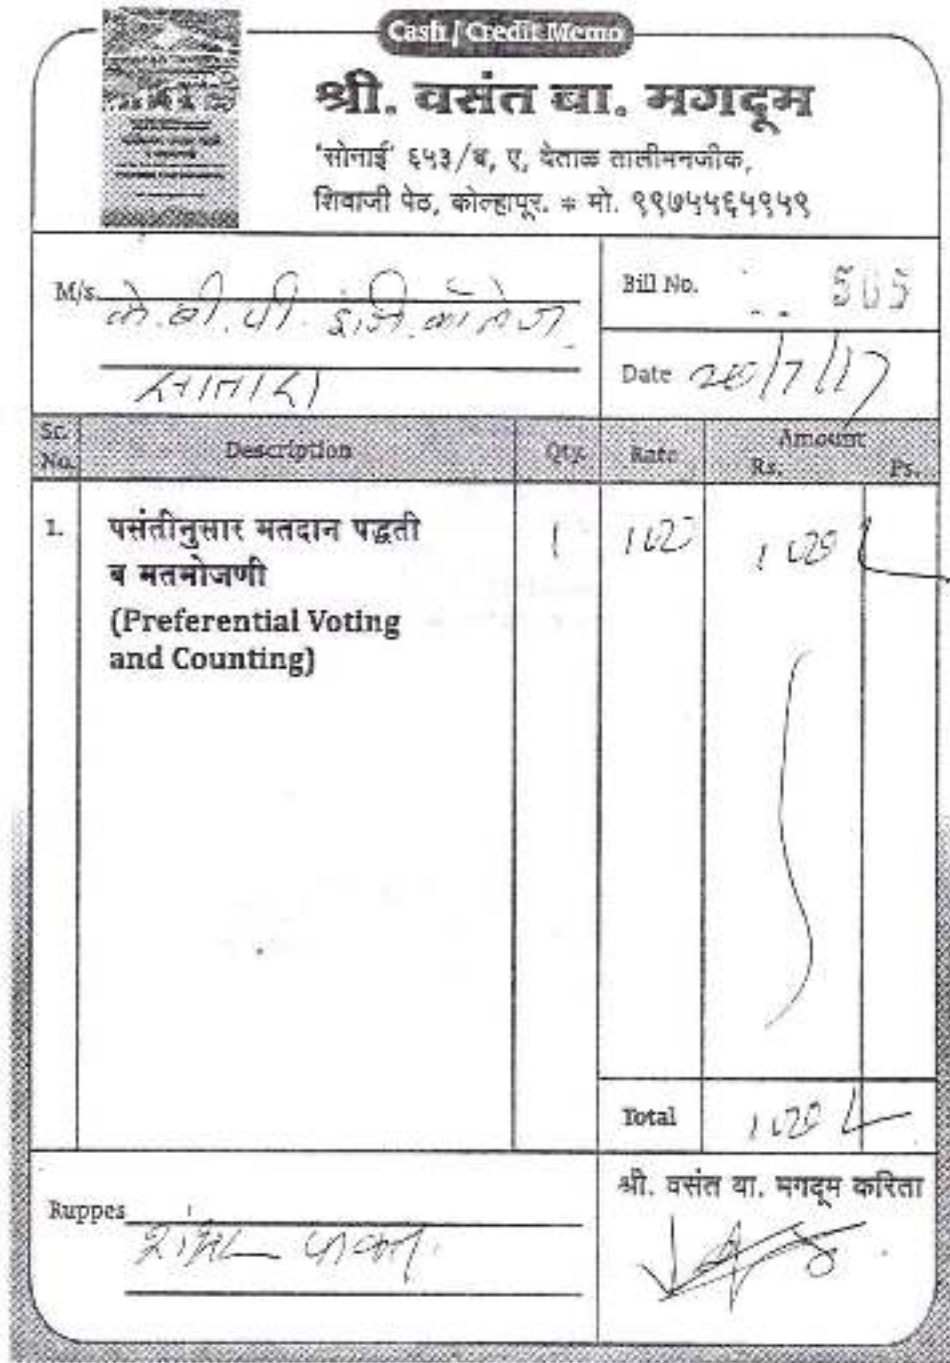 Cash / Credit Memo
श्री. वसंत बा. मगदूम
'सोनाई' ६५३/ब, ए, वेताळ तालीमनजीक,
शिवाजी पेठ, कोल्हापूर. * मो. ९९७५५६५९५९
M/s. के.बी.पी. इंजि. कॉलेज
सातारा
Bill No. 505
Date 20/7/17
Sr. No. Description Qty. Rate Amount Rs. Ps.
1. पसंतीनुसार मतदान पद्धती 1 100 100
व मतमोजणी
(Preferential Voting
and Counting)
Total 100
Ruppes शंभर फक्त.
श्री. वसंत बा. मगदूम करिता